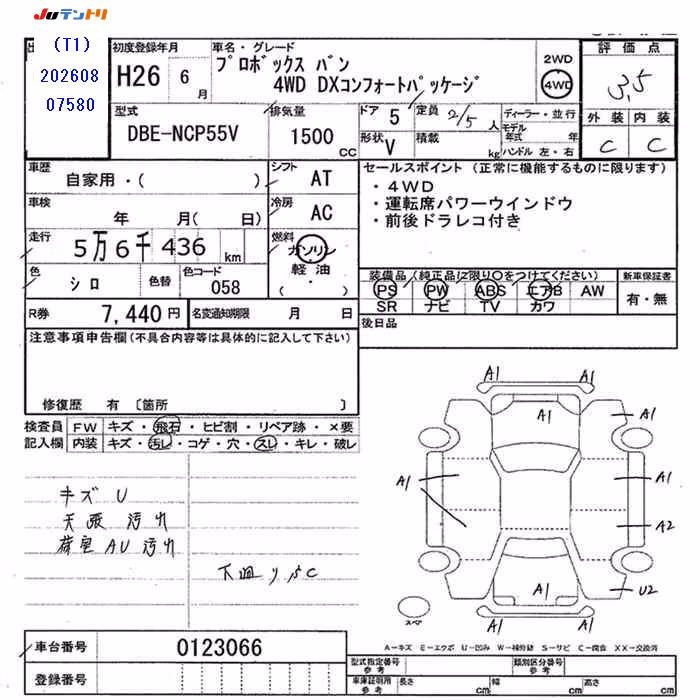 JUテントリ
出 (T1)
202608
07580
初度登録年月
H26 6 月
車名・グレード
プロボックス バン
4WD DXコンフォートパッケージ
2WD
4WD
評価点
3.5
外装 内装
C C
型式
DBE-NCP55V
排気量
1500 CC
ドア 5
形状 V
定員 2/5 人
積載 kg
ディーラー・並行
モデル年式 年
ハンドル 左・右
車歴
自家用・( )
シフト AT
車検
年 月( 日)
冷房 AC
走行
5万6千436 km
燃料 ガソリン
軽油
( ・ )
色 シロ 色替
色コード 058
R券 7,440 円
名変通知期限 月 日
セールスポイント (正常に機能するものに限ります)
・4WD
・運転席パワーウインドウ
・前後ドラレコ付き
装備品 (純正品に限り○をつけてください)
PS PW ABS エアB AW
SR ナビ TV カワ
新車保証書
有・無
後日品
注意事項申告欄(不具合内容等は具体的に記入して下さい)
修復歴 有 〔箇所 〕
検査員記入欄
FW キズ・飛石・ヒビ割・リペア跡・×要
内装 キズ・汚れ・コゲ・穴・スレ・キレ・破レ
キズ U
天張 汚れ
荷室 AU 汚れ
下廻り SC
A1 A1
A1 A1
A1 A1
A2
A1 U2
A1 A1
スペア
A-キズ E-エクボ U-凹み W-補修跡 S-サビ C-腐食 XX-交換済
車台番号 0123066
登録番号
型式指定番号 参考
類別区分番号 参考
車庫証明用 参考 長さ cm 幅 cm 高さ cm